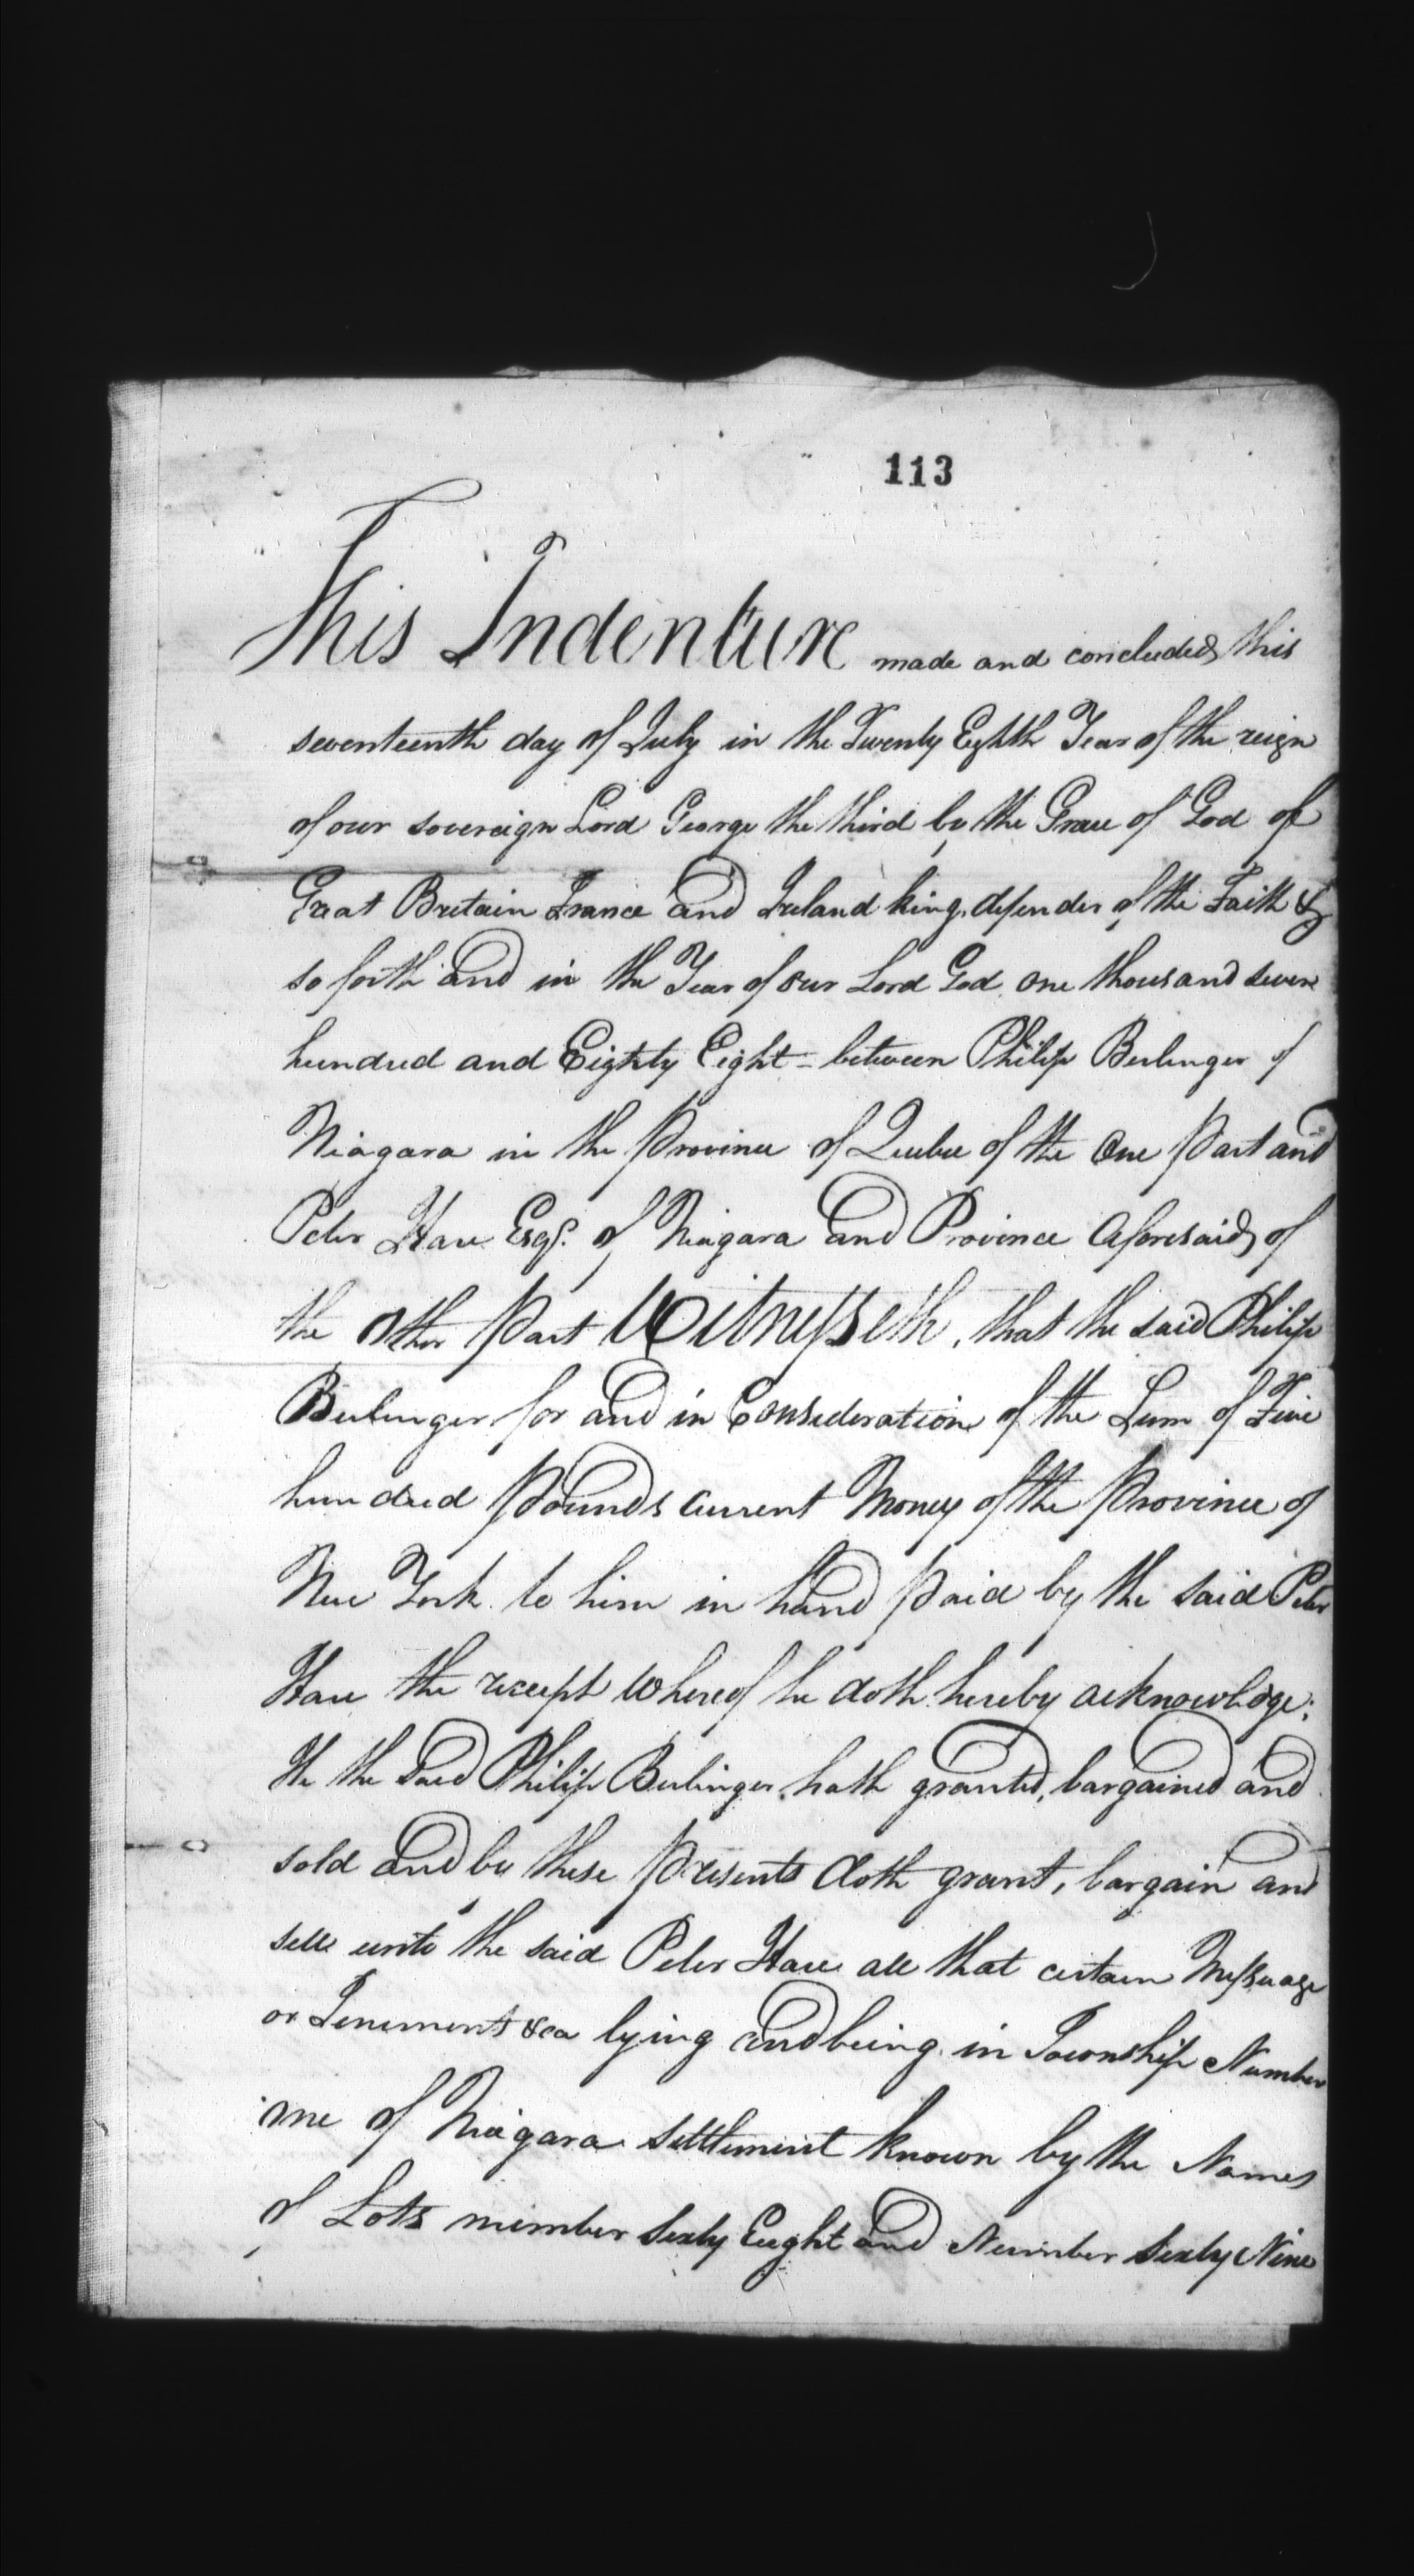 113
This Indenture made and concluded this
seventeenth day of July in the Twenty Eighth Year of the reign
of our sovereign Lord George the third by the Grace of God of
Great Britain France and Ireland king defender of the Faith &
so forth and in the Year of our Lord God one thousand seven
hundred and Eighty Eight - between Philip Berlinger of
Niagara in the Province of Quebec of the One Part and
Peter Hare Esqr. of Niagara and Province Aforesaid of
the Other Part Witnesseth, that the said Philip
Berlinger for and in Consideration of the Sum of Five
hundred Pounds Current Money of the Province of
New York to him in hand Paid by the said Peter
Hare the receipt Whereof he doth hereby acknowledge;
He the Said Philip Berlinger hath granted, bargained and
sold and by these Presents doth grant, bargain and
sell unto the said Peter Hare all that certain Messuage
or Tenements &ca lying and being in Township Number
one of Niagara Settlement known by the Names
of Lots number Sixty Eight and Number Sixty Nine